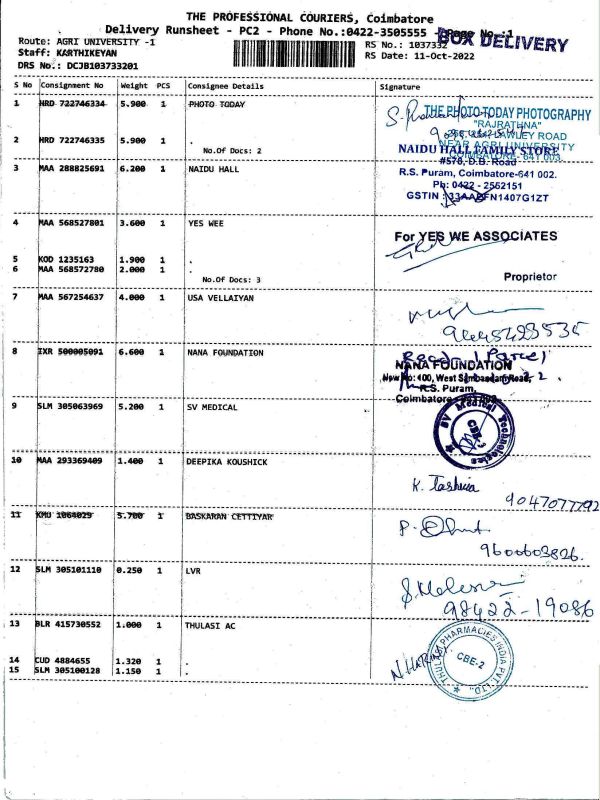 THE PROFESSIONAL COURIERS, Coimbatore
Delivery Runsheet - PC2 - Phone No.:0422-3505555 - Page No.:1
BOX DELIVERY
Route: AGRI UNIVERSITY -1
RS No.: 1037332
Staff: KARTHIKEYAN
RS Date: 11-Oct-2022
DRS No.: DCJB103733201
S No Consignment No Weight PCS Consignee Details Signature
1 HRD 722746334 5.900 1 PHOTO TODAY
THE PHOTO TODAY PHOTOGRAPHY
"RAJRATHNA"
LAWLEY ROAD
NEAR AGRI UNIVERSITY
COIMBATORE- 641 003
2 HRD 722746335 5.900 1 .
No.Of Docs: 2
3 MAA 288825691 6.200 1 NAIDU HALL
NAIDU HALL FAMILY STORE
#578, D.B. Road
R.S. Puram, Coimbatore-641 002.
Ph: 0422 - 2552151
GSTIN : 33AABFN1407G1ZT
4 MAA 568527801 3.600 1 YES WEE
For YES WE ASSOCIATES
Proprietor
5 KOD 1235163 1.900 1 .
6 MAA 568572780 2.000 1 .
No.Of Docs: 3
7 MAA 567254637 4.000 1 USA VELLAIYAN
8 IXR 500005091 6.600 1 NANA FOUNDATION
NANA FOUNDATION
New No: 100, West Sambandam Road,
R.S. Puram,
Coimbatore
9 SLM 305063969 5.200 1 SV MEDICAL
SV Medical Technologies
CBE
10 MAA 293369409 1.400 1 DEEPIKA KOUSHICK
9047077792
11 KMU 1064029 5.700 1 BASKARAN CETTIYAR
9600603826
12 SLM 305101110 0.250 1 LVR
98422-19086
13 BLR 415730552 1.000 1 THULASI AC
THULASI PHARMACIES INDIA PVT. LTD.
CBE-2
14 CUD 4884655 1.320 1 .
15 SLM 305100128 1.150 1 .